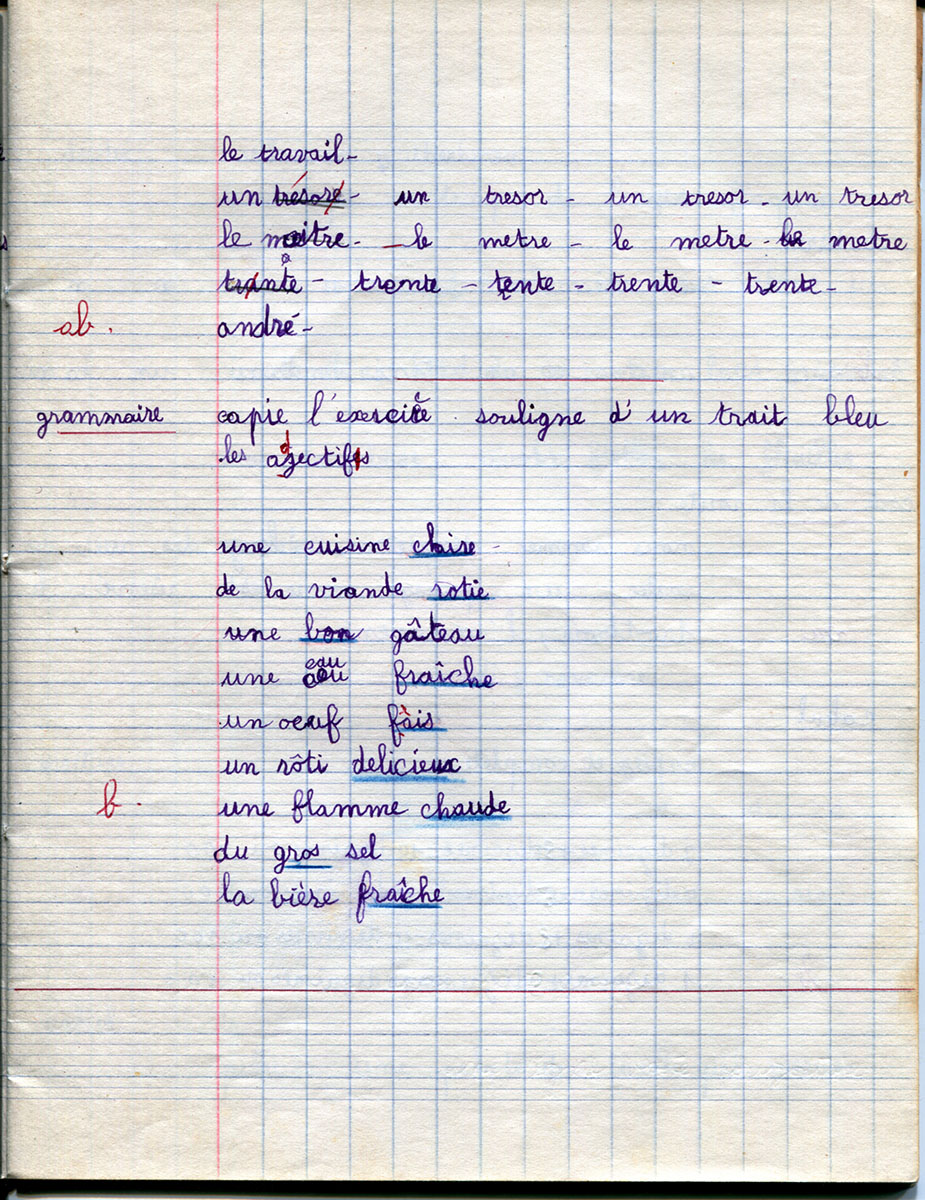 le travail-
un trésore - un tresor - un tresor - un tresor
le maitre - le metre - le metre - le metre
trante - trente - trente - trente - trente -
ab. andré-
grammaire copie l'exercice souligne d'un trait bleu
les adjectifs
une cuisine claire -
de la viande rotie
une bon gâteau
une eau fraîche
un oeuf fàis
un rôti delicieux
b. une flamme chaude
du gros sel
la bière fraîche